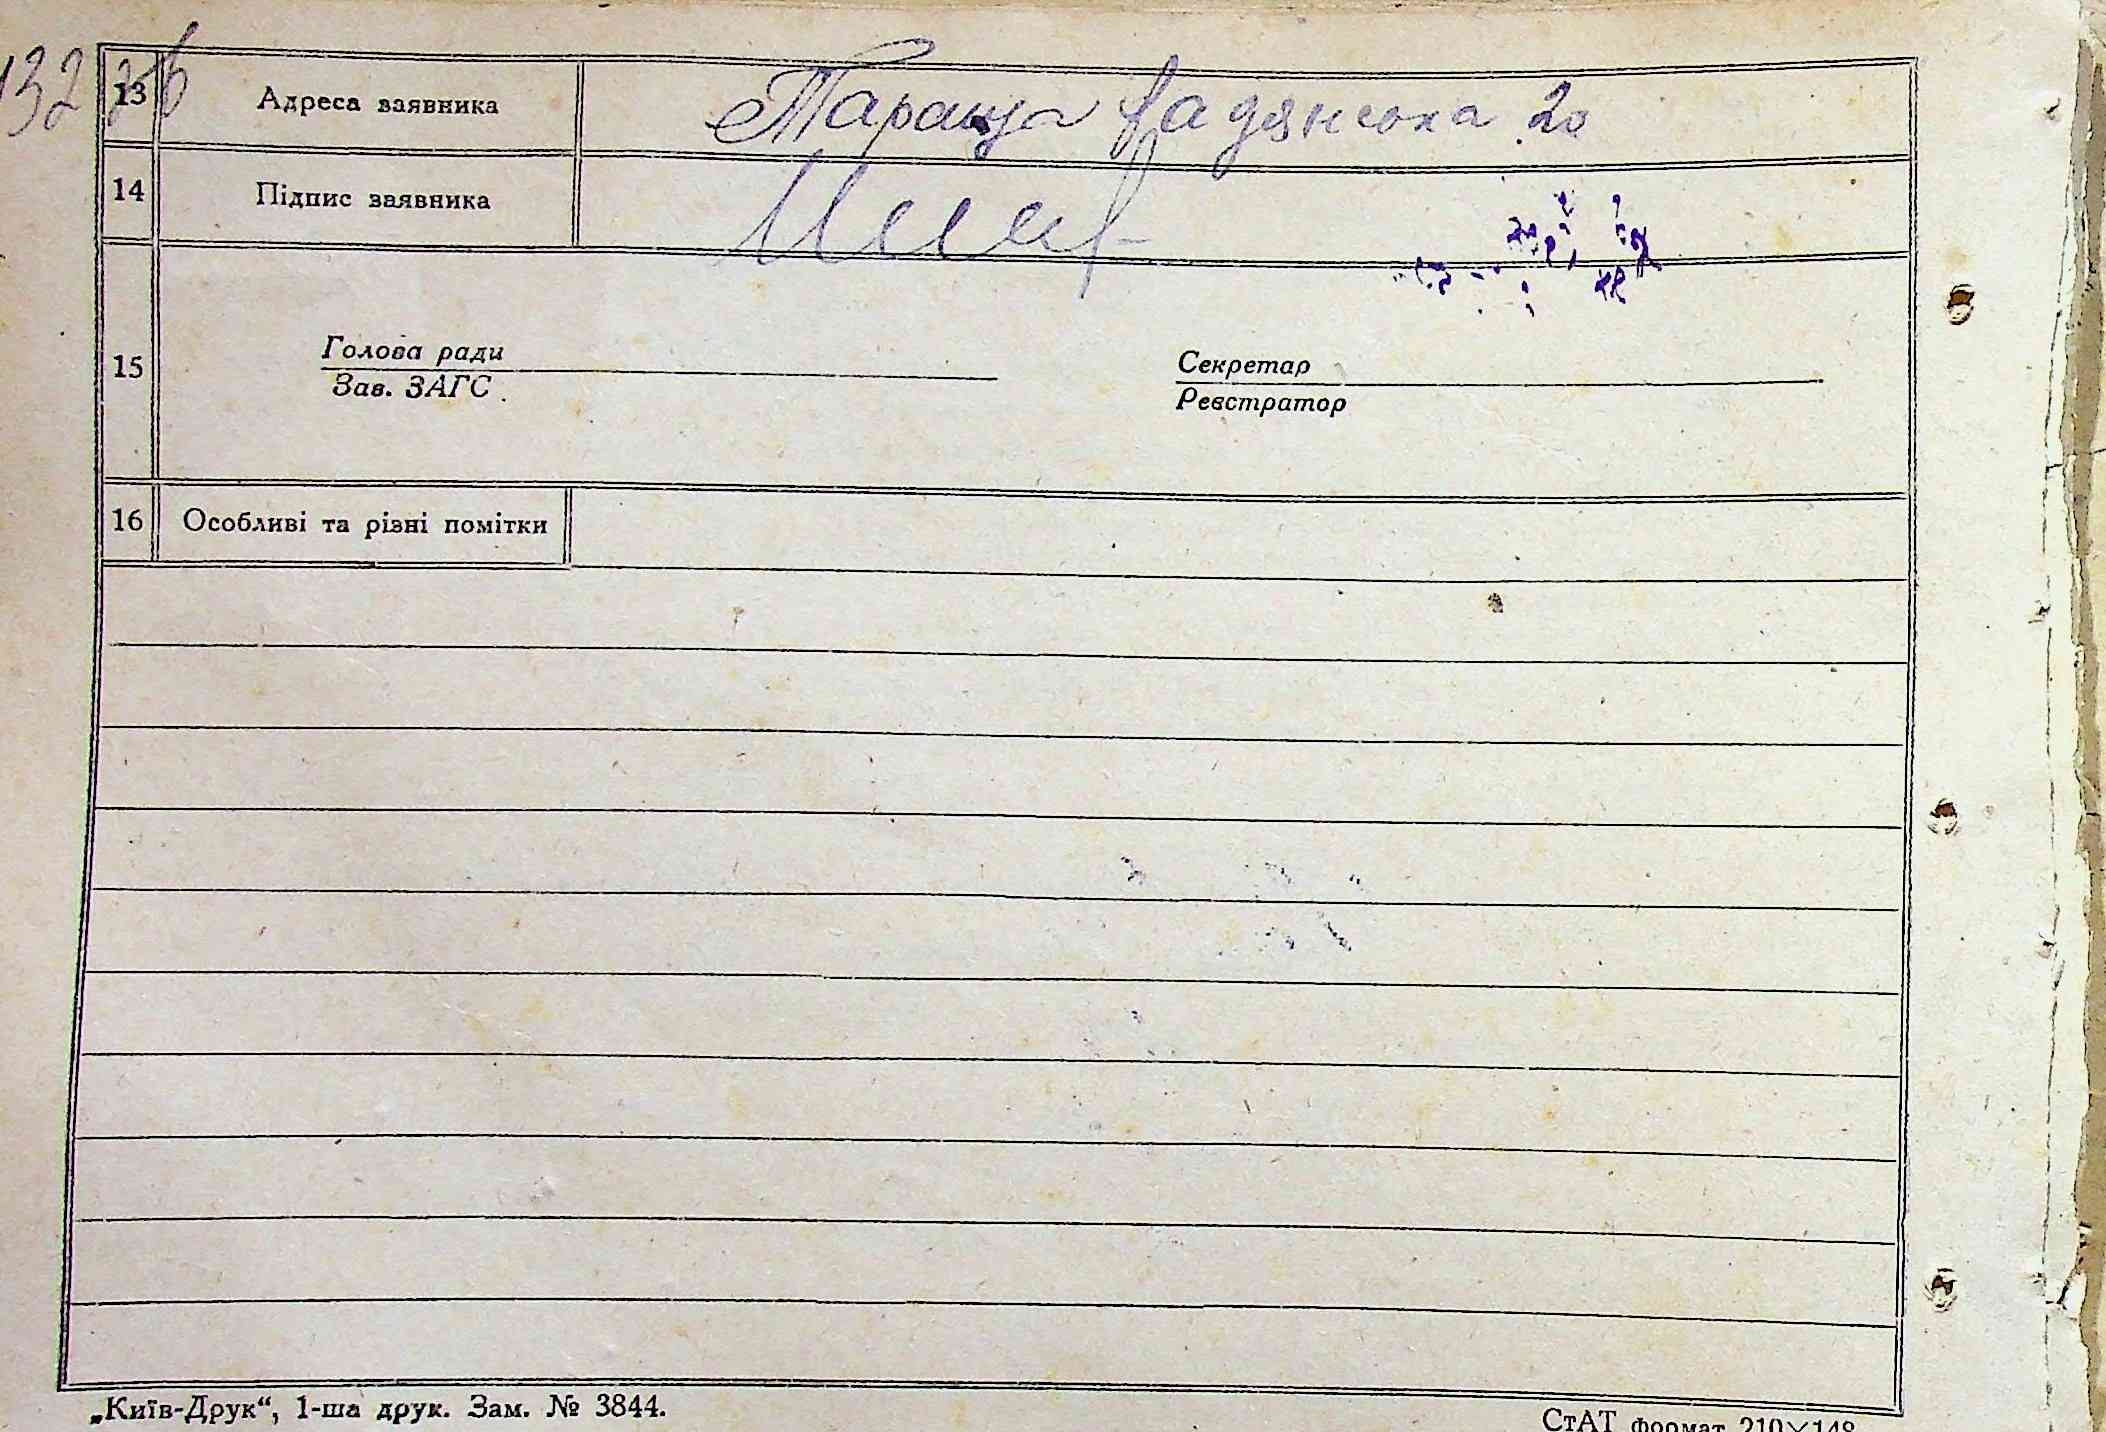 132 зв
13 Адреса заявника Тараща Радянська 20
14 Підпис заявника
15 Голова ради Секретар
Зав. ЗАГС Реєстратор
16 Особливі та різні помітки
„Київ-Друк“, 1-ша друк. Зам. № 3844.
СтАТ формат 210×148